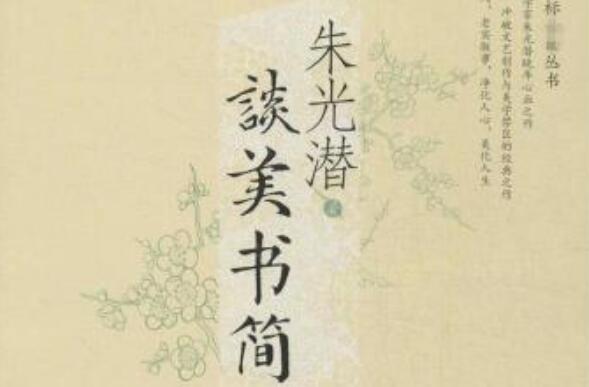 标丛书
学家朱光潜晚年心血之作
冲破文艺创作与美学禁区的经典之作
老实做事，净化人心，美化人生
朱光潜
談美书简